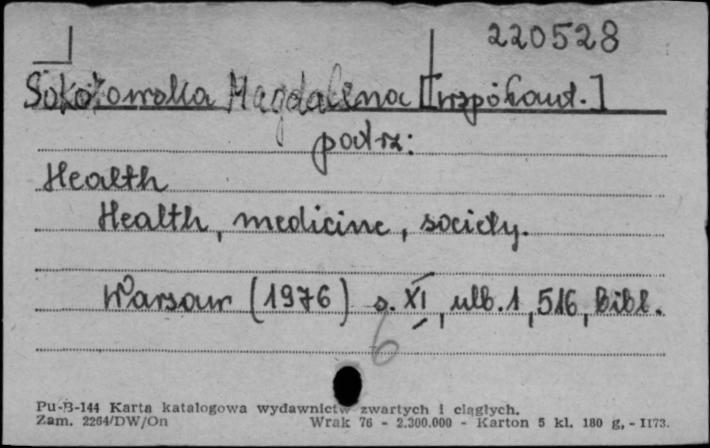 220528
Sokołowska Magdalena [współaut.]
patrz:
Health
Health, medicine, society.
Warsaw (1976) s. XI, ulb. 1, 516, Bibl.
6
Pu-B-144 Karta katalogowa wydawnictw zwartych i ciągłych.
Zam. 2264/DW/On Wrak 76 - 2.300.000 - Karton 5 kl. 180 g, - II73.